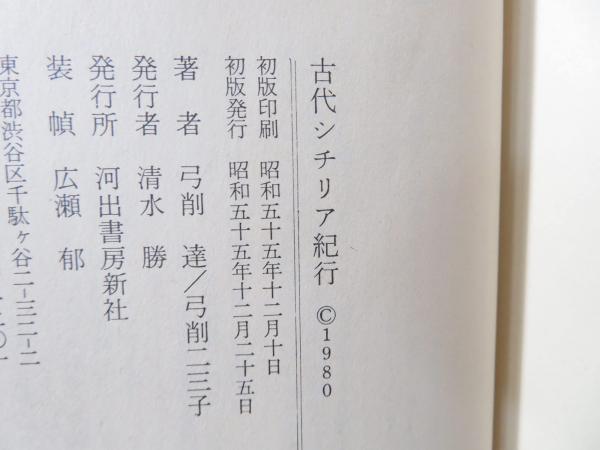 古代シチリア紀行 ©1980
初版印刷 昭和五十五年十二月十日
初版発行 昭和五十五年十二月二十五日
著者 弓削達/弓削二三子
発行者 清水勝
発行所 河出書房新社
装幀 広瀬郁
東京都渋谷区千駄ヶ谷二-三二-二